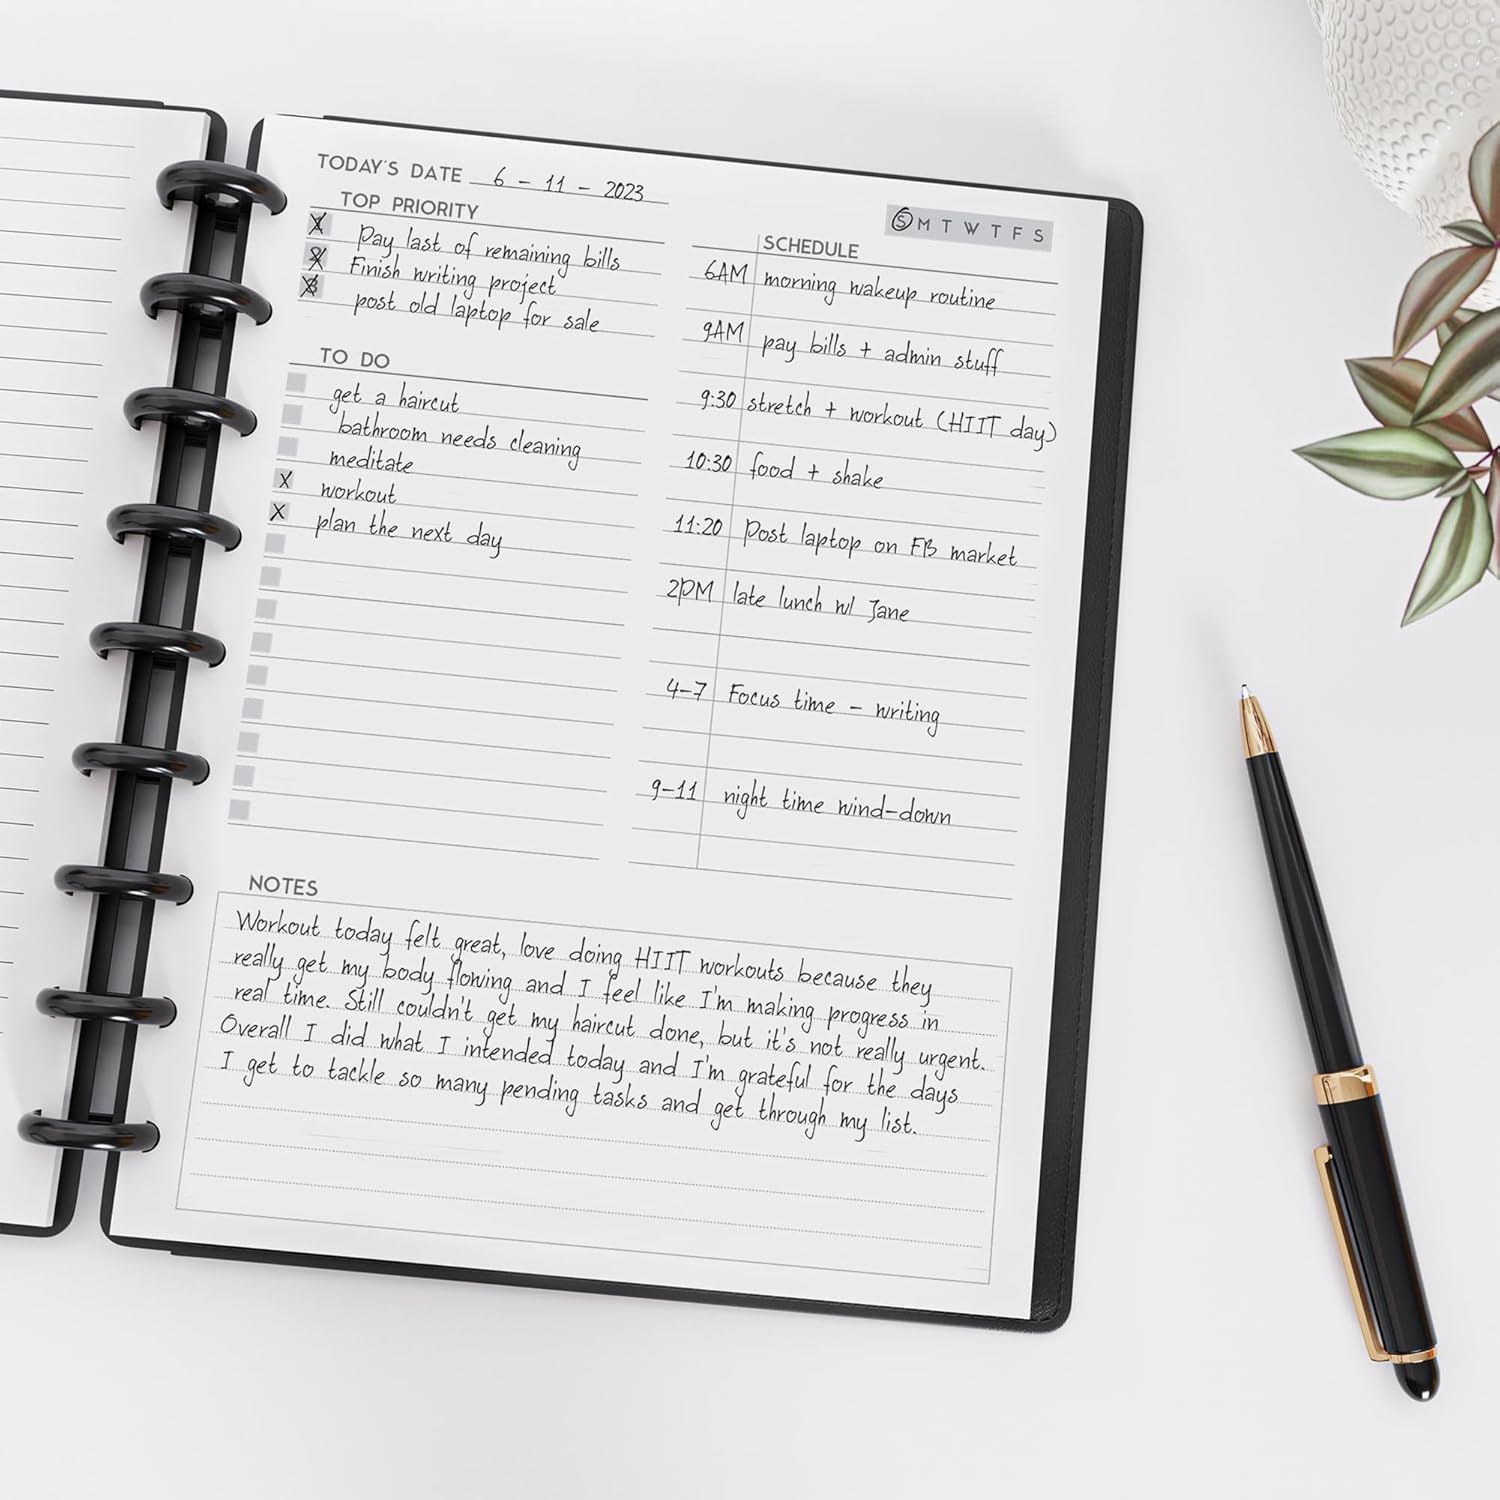 TODAY'S DATE 6 - 11 - 2023
S M T W T F S
TOP PRIORITY
1 Pay last of remaining bills
2 Finish writing project
3 post old laptop for sale
TO DO
get a haircut
bathroom needs cleaning
meditate
X workout
X plan the next day
SCHEDULE
6AM morning wakeup routine
9AM pay bills + admin stuff
9:30 stretch + workout (HIIT day)
10:30 food + shake
11:20 Post laptop on FB market
2PM late lunch w/ Jane
4-7 Focus time - writing
9-11 night time wind-down
NOTES
Workout today felt great, love doing HIIT workouts because they
really get my body flowing and I feel like I'm making progress in
real time. Still couldn't get my haircut done, but it's not really urgent.
Overall I did what I intended today and I'm grateful for the days
I get to tackle so many pending tasks and get through my list.